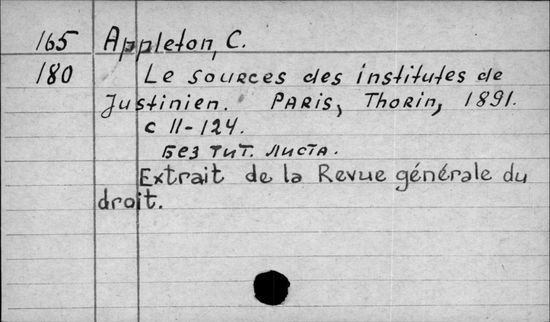 165 Appleton, C.
180 Le sources des institutes de
Justinien. Paris, Thorin, 1891.
с 11-124.
Без тит. листа.
Extrait de la Revue générale du
droit.